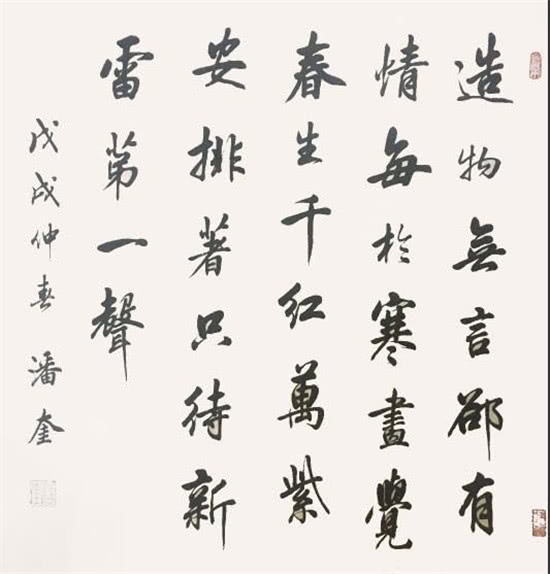 造物無言郤有
情每於寒盡覺
春生千红萬紫
安排著只待新
雷第一聲
戊戌仲春 潘奎